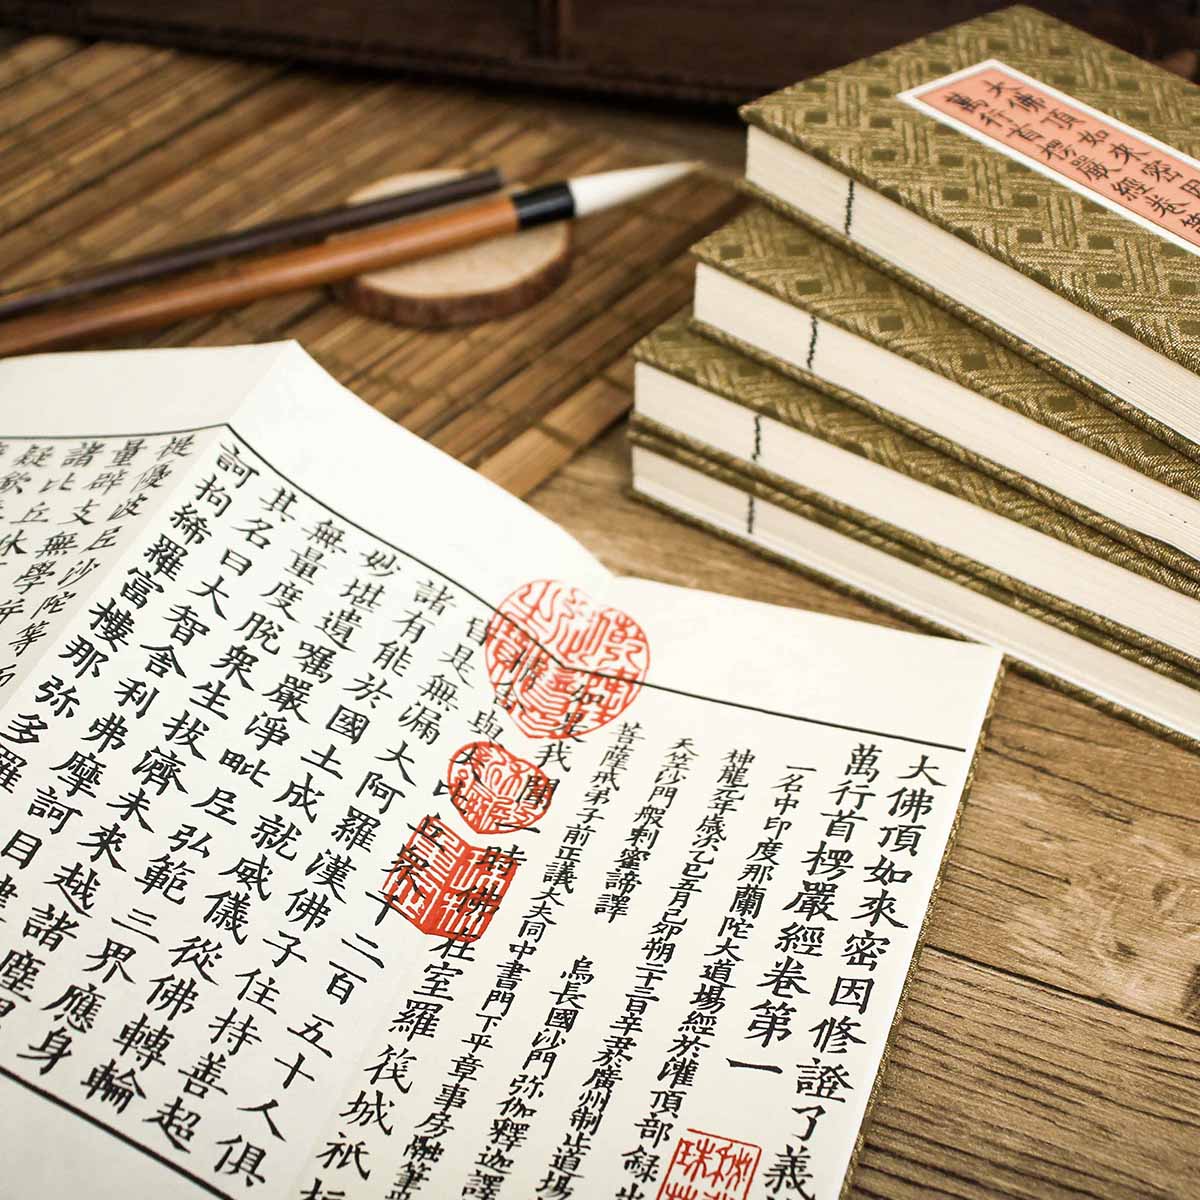 大佛頂如來密因
萬行首楞嚴經卷第
大佛頂如來密因修證了義
萬行首楞嚴經卷第一
一名中印度那蘭陀大道場經於灌頂部錄出
神龍元年歲次乙巳五月己卯朔二十三日辛丑於廣州制止道場
天竺沙門般剌蜜諦譯
烏長國沙門弥伽釋迦譯
菩薩戒弟子前正議大夫同中書門下平章事房融筆受
如是我聞一時佛在室羅筏城祇桓
舍與大比丘眾千二百五十人俱
皆是無漏大阿羅漢佛子住持善超
諸有能於國土成就威儀從佛轉輪
妙堪遺囑嚴淨毗尼弘範三界應身
無量度脫眾生拔濟未來越諸塵累
其名曰大智舍利弗摩訶目犍
訶拘絺羅富樓那弥多羅
提優波尼沙陀等而
量辟支無學
諸比丘休
疑欲